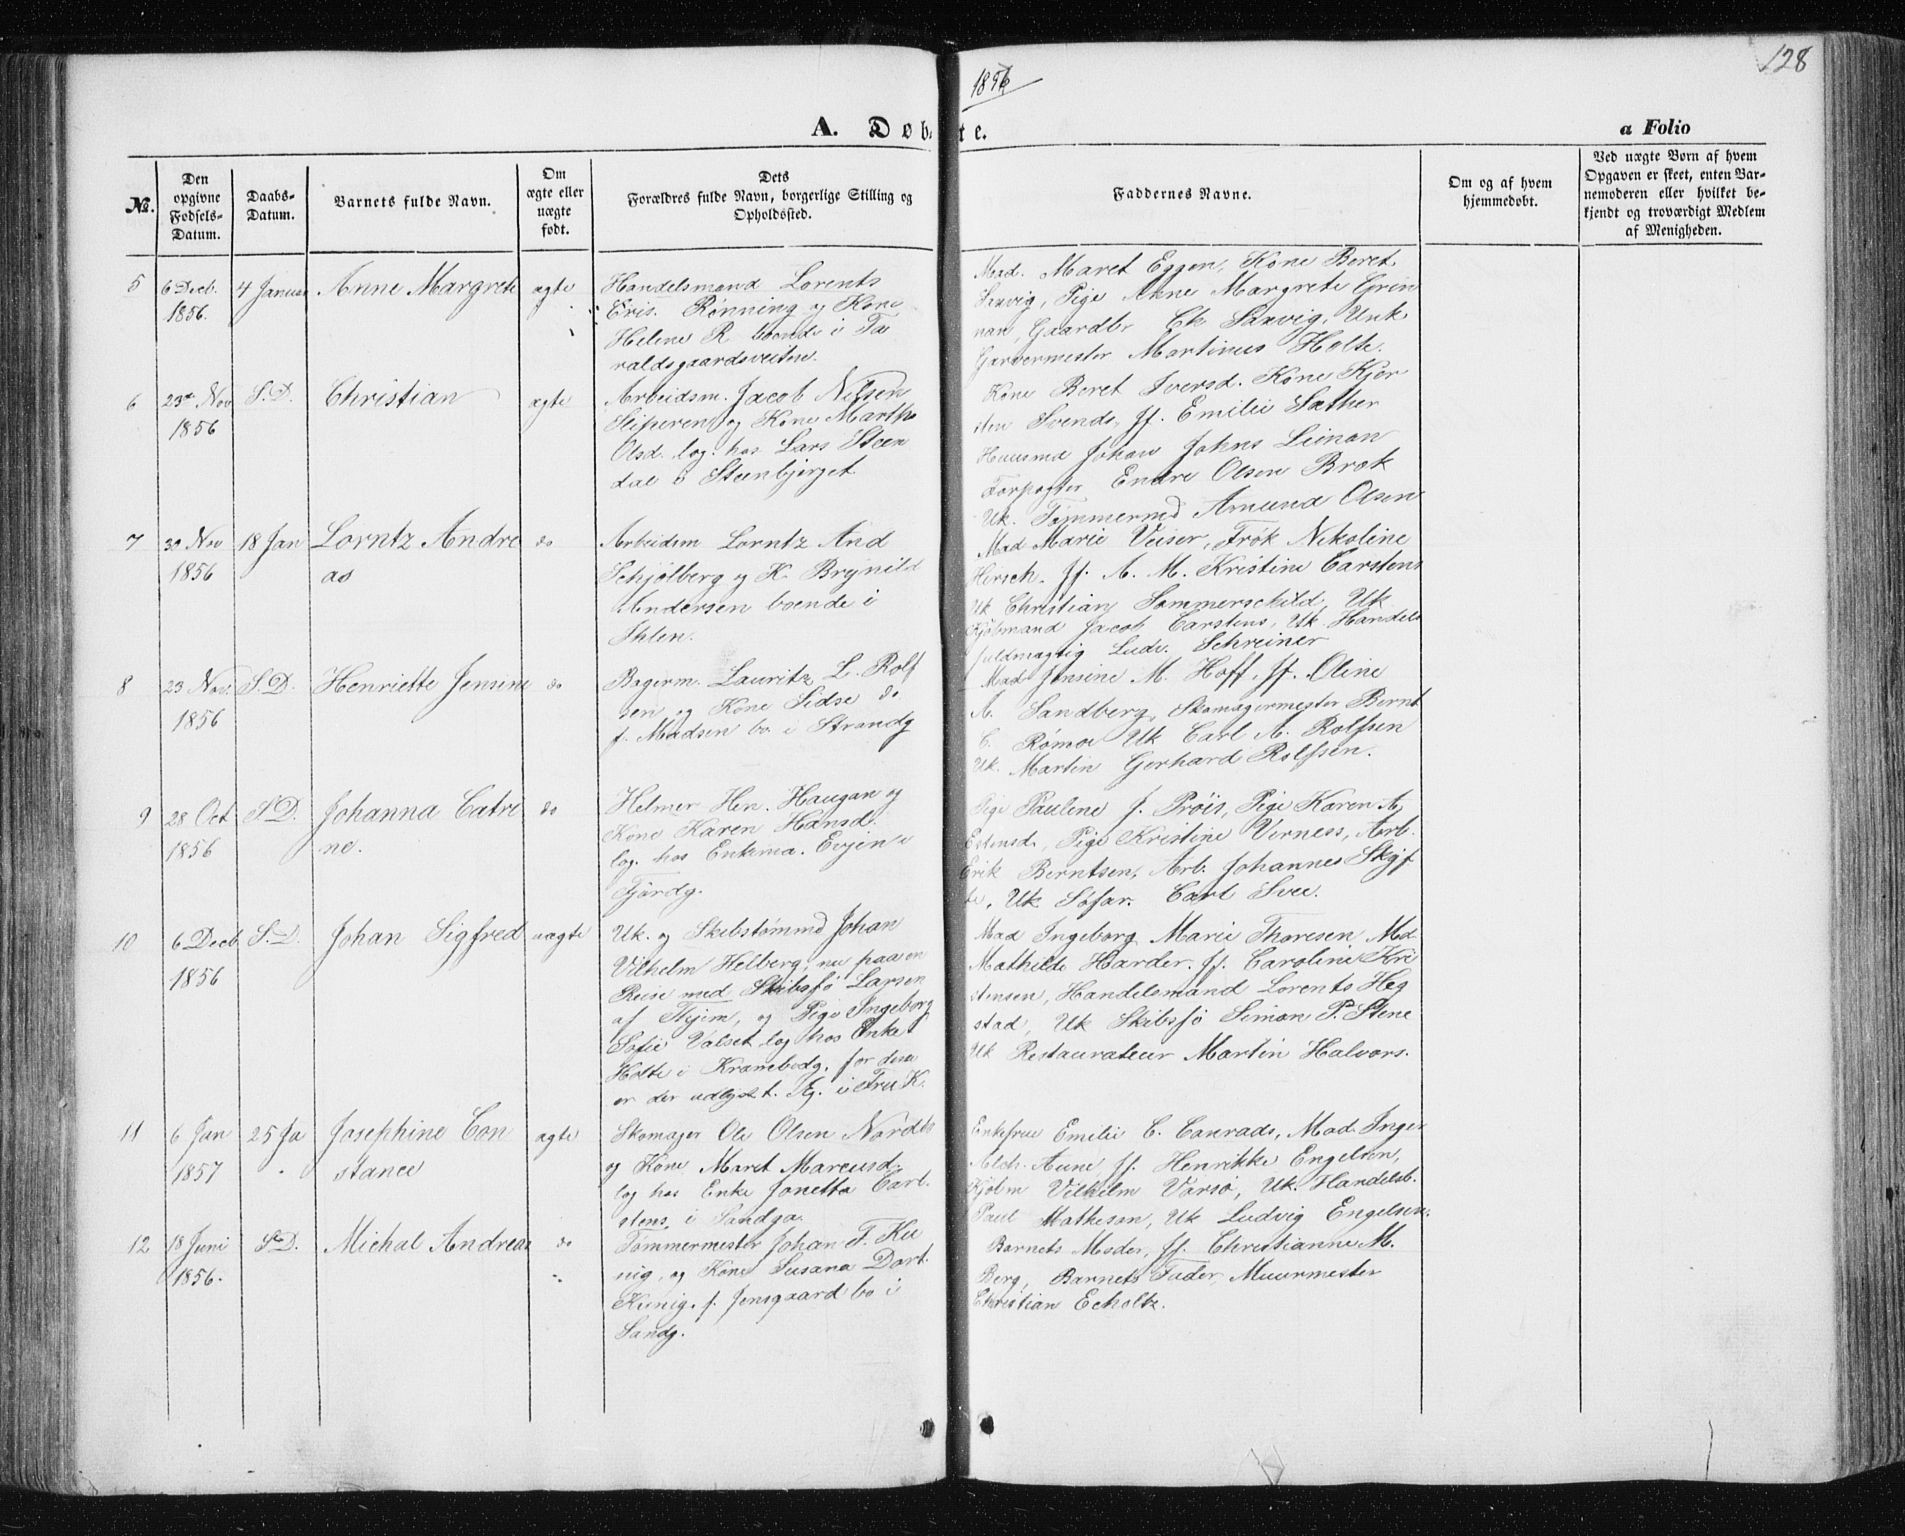 128
1856
A. Døbte.
a Folio
№.
Den opgivne Fødsels-Datum.
Daabs-Datum.
Barnets fulde Navn.
Om ægte eller uægte født.
Dets Forældres fulde Navn, borgerlige Stilling og Opholdssted.
Faddernes Navne.
Om og af hvem hjemmedøbt.
Ved uægte Børn af hvem Opgaven er skeet, enten Barnemoderen eller hvilket bekjendt og troværdigt Medlem af Menigheden.
5
6 Decb. 1856.
4 Januar
Anne Margrete
ægte
Handelsmand Lorents
Eris. Rønning og Kone
Helene R. boende i Ta
raldsgaardsveiten.
Mad. Maret Eggen, Kone Beret
Saxvig, Pige Anne Margrete Grin
nan, Gaardbr Ch Saxvig, Unk
Garvermester Martinus Holte.
6
23de Nov 1856
S.D.
Christian
ægte
Arbeidsm. Jacob Nilsen
og Kone Martha
Olsd. log. hos Lars Steen
dal i Steenbjerget
Kone Beret Iversd. Kone Kjer
sten Svends, Jf. Emilie Sæther
Huusmd Johan Johns Limon
Forpagter Endre Olsen Brøk
Uk. Tømmermd Amund Olsen
7
30 Nov 1856
18 Jan
Lorntz Andre
as
do
Arbeidsm Lorntz And
Schjølberg og K. Brynild
Andersen boende i
Ihlen.
Mad Marie Veiser, Frøk Nikoline
Hersch. Jf. A. M. Kristine Carstens
Uk Christian Sommerschild, Uk
Kjøbmand Jacob Carstens, Uk. Handels
fuldmægtig Ludv. Schreiner
8
23 Nov. 1856
S.D.
Henriette Jensine
do
Bagerm. Lauritz L. Rolf
sen og Kone Sidse do
f. Madsen bo. i Strandg
Mad Jensine M. Hoff. Jf. Oline
A. Sandberg, Skomagermester Bernt
C. Rømoe Uk Carl A. Rolfsen
Uk. Martin Gerhard Rolfsen.
9
28 Oct 1856
S.D.
Johanna Catri
ne.
do
Helmer Hen. Haugan og
Kone Karen Hansd.
log. hos Enkma. Evjen i
Fjordg.
Pige Paulene J. Prøis, Pige Karen A.
Estensd, Pige Kristine Verness, Arb.
Erik Berntsen, Arb. Johannes Skjf
te, Uk Søfar. Carl Svee.
10
6 Decb 1856
S.D.
Johan Sigfred
uægte
Uk. og Skibstømmd Johan
Vilhelm Helberg, nu paa en
Reise med Skibsfø Larsen
af Thjem, og Pige Ingeborg
Sofie Valset log hos Enke
Holte i Kranebodg, for desse
er der udlyst t. Æg. i Frue K.
Mad Ingeborg Marie Thoresen Md.
Mathilde Harder. Jf. Caroline Kri
stensen, Handelsmand Lorents Heg
stad, Uk Skibsfø Simon P. Stene
Uk Restaurateur Martin Halvors.
11
6 Jan 1857
25 Ja
Josephine Con
stance
ægte
Skomager Ole Olsen Nordbø
og Kone Maret Marcusd.
log hos Enke Jonetta Carl
stens, i Sandga.
Enkefrue Emilie C. Conrads, Mad. Inge
Alch. Aune Jf. Henrikke Engelsen,
Kjøbm Vilhelm Varsø, Uk. Handelsb.
Paul Matheson, Uk Ludvig Engelsen.
12
18 Juni 1856.
S.D.
Michal Andreas
do
Tømmermester Johan F. Kü
nig, og Kone Susana Dort.
Künig, f. Jensgaard bo i
Sandg.
Barnets Moder, Jf. Christianne M.
Berg, Barnets Fader, Muurmester
Christian Echoltz.